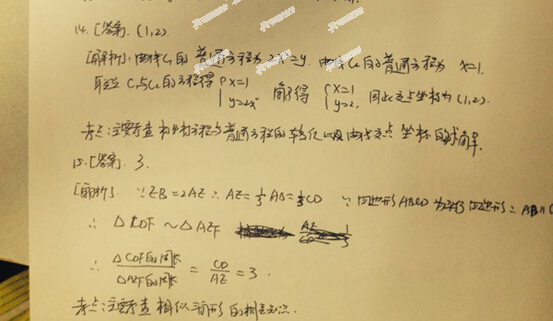 14. [答案] (1,2).
[解析]: 曲线C₁的普通方程为 2x²=y, 曲线C₂的普通方程为 x=1.
联立 C₁与C₂的方程得 { x=1 y=2x² 解得 { x=1 y=2. 因此交点坐标为 (1,2).
考点: 主要考查极坐标方程与普通方程的转化以及曲线交点坐标的求解.
15. [答案] 3.
[解析] ∵ EB=2AE ∴ AE=⅓AB=⅓CD ∵ 四边形 ABCD 为平行四边形 ∴ AB∥C
∴ △CDF ∼ △AEF
∴ △CDF的周长/△AEF的周长 = CD/AE = 3.
考点: 主要考查相似三角形的相关知识.